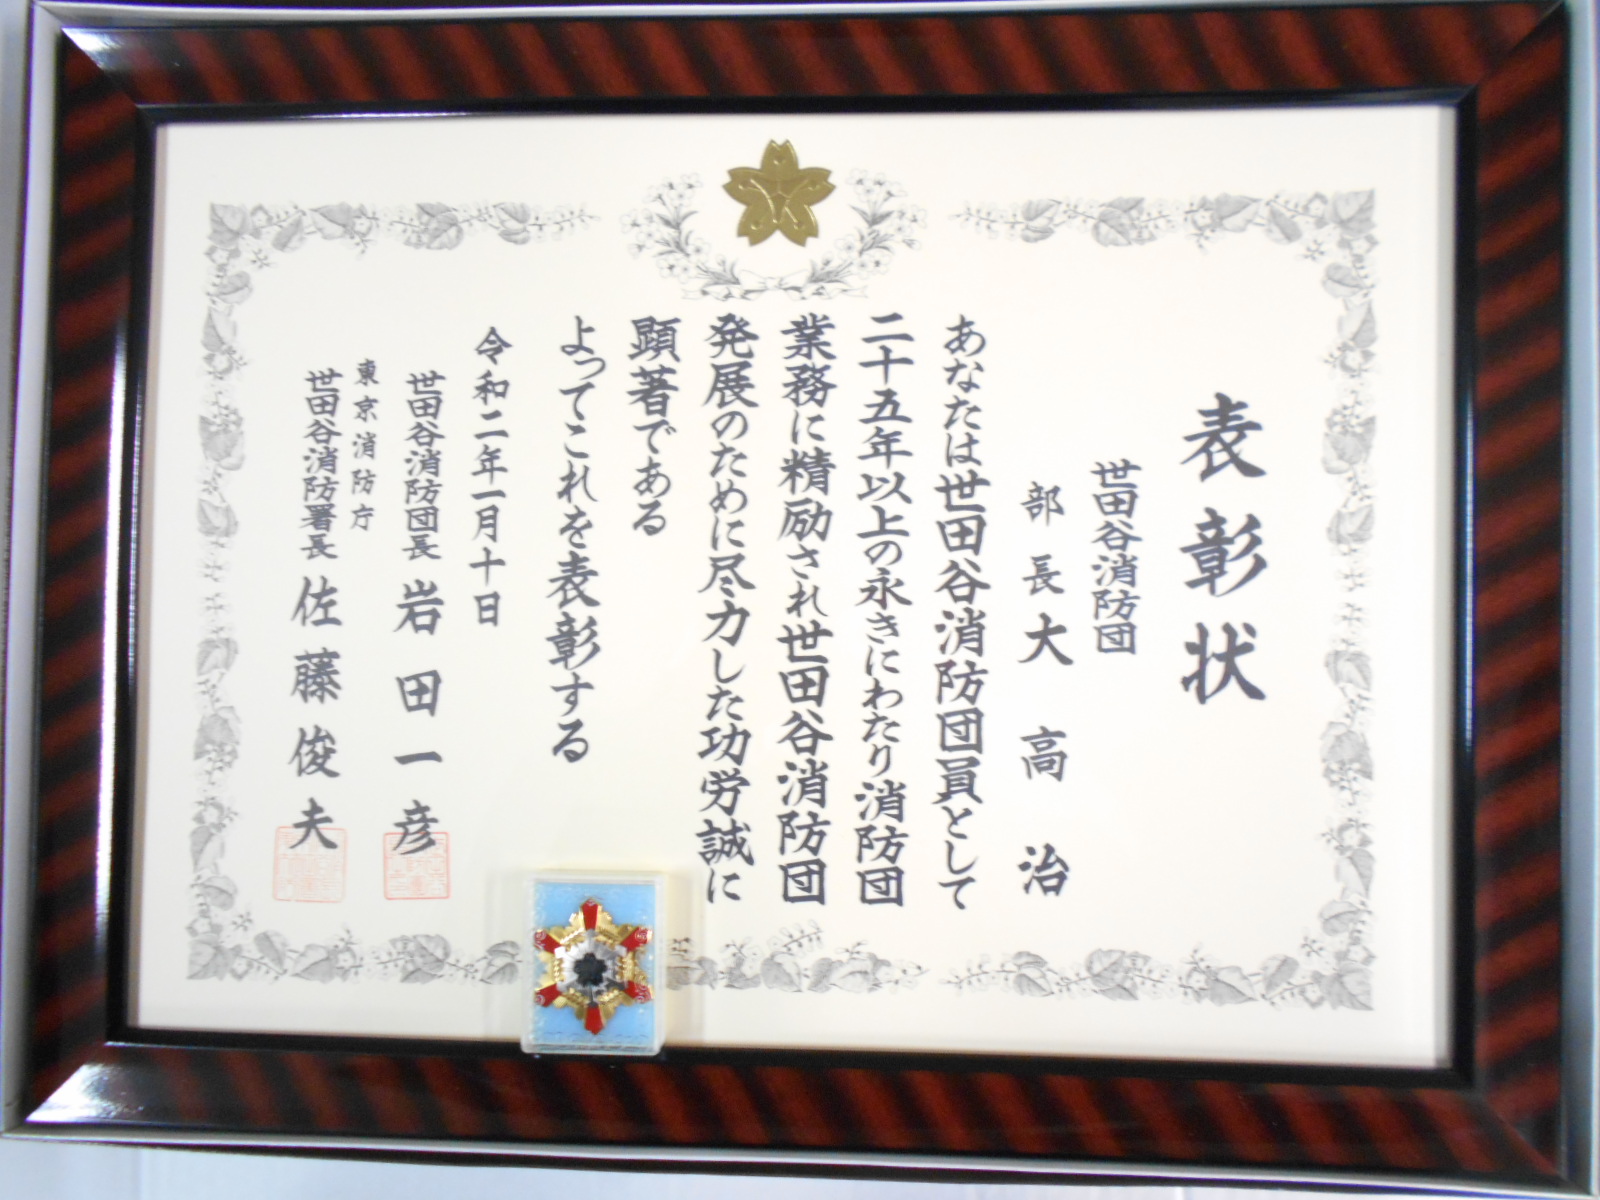 表彰状
世田谷消防団
部長 大高治
あなたは世田谷消防団員として
二十五年以上の永きにわたり消防団
業務に精励され世田谷消防団
発展のために尽力した功労誠に
顕著である
よってこれを表彰する
令和二年一月十日
世田谷消防団長 岩田一彦
東京消防庁
世田谷消防署長 佐藤俊夫